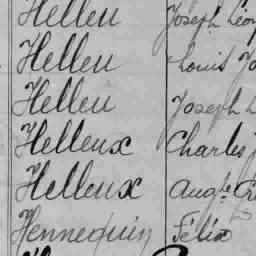 Helleu Joseph Léop
Helleu Louis Jo
Helleu Joseph L
Helleux Charles J
Helleux Augte
Hennequin Félix